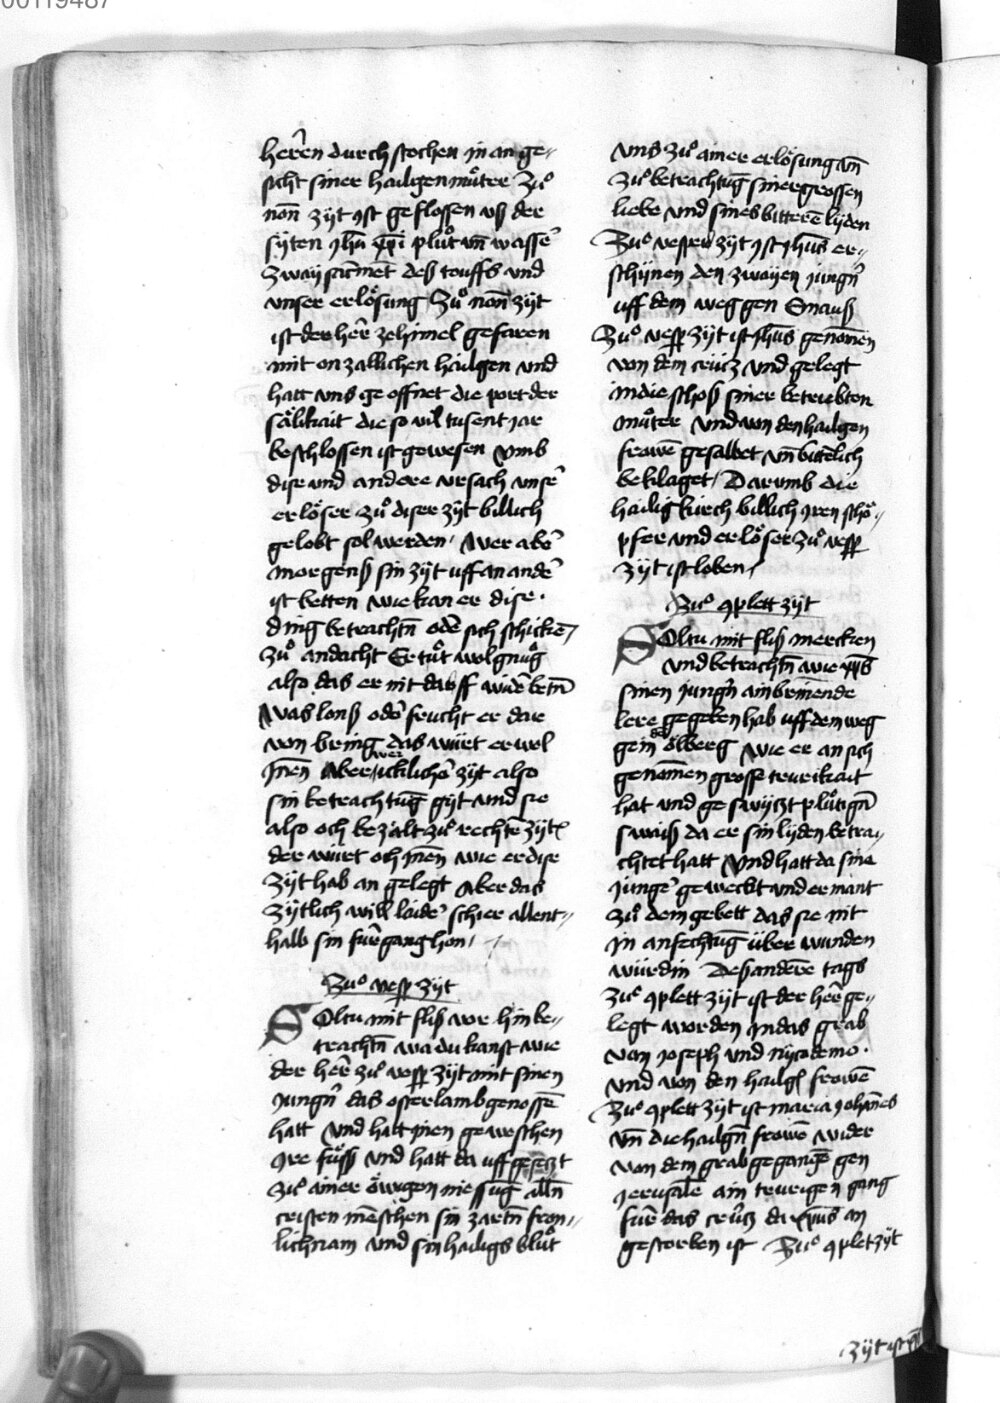 00119487
herrē durch stochen in an ge-
sicht siner hailgen můter Zů
non zÿt ist geflossen vß der
sÿten jhū xpi plůt vn̄ wasser
zwaÿ sacrmēt deß touffs vnd
vnser erlösung Zů non zÿt
ist der her zehimel gefaren
mit on zallichen hailgen vnd
hatt vns ge offnet die port der
sälikait die so vil tusent jar
beschlossen ist gewesen vmb
dise vnd andere vrsach vnser
erlöser zů diser zÿt billich
gelobt sol werden Wer aber
morgens sin zÿt uff an ander
ist betten wie kan er dise
ding betrachtn̄ oder sich schicken
zů andacht Er tůt wol gnůg
also das er nit darff wider betn̄
Was lons oder frucht er dar
von bring das wirt er wol
Inen Aber wer icklicher zÿt also
sin betrachtūg gÿt vnd sie
also och bezalt zů rechter zÿt
der wirt och Inen wie er dise
zÿt hab an gelegt Aber das
zÿtlich will laider schier allent-
halb sin fürgang hon
Zů vesp zÿt
Soltu mit fliß vor hin be-
trachtn̄ wa du kanst wie
der her zů vesp zÿt mit sinen
jungn̄ das osterlamb genossē
hatt vnd hatt jnen geweschen
Ire füß vnd hatt da uff gesetzt
zů ainer öwigen niessūg alln̄
cristen menschen sin zartn̄ fron-
lichnam vnd sin hailigs blůt
vns zů ainer erlösung vn̄
zů betrachtūg siner grossen
liebe vnd sines bitterē lÿden
Zů vesper zÿt ist jhūs er-
schÿnen den zwaÿen jungn̄
uff dem weg gen Emauß
Zů vesp zÿt ist jhūs genomen
von dem crütz vnd gelegt
in die schoß siner betrubten
můter vnd von den hailgen
frowē gesalbet vn̄ bitterlich
beklaget Darumb die
hailig kirch billich jren schö-
pfer vnd erlöser zů vesp
zÿt ist loben
Zů 9plett zÿt
Soltu mit fliß mercken
vnd betrachtn̄ wie xp̄s
sinen jungn̄ ain brinende
lere gegeben hab uff dem weg
gein ölberg wie er an sich
genomen grosse trurikait
hat vnd geswÿtzt plůtign̄
swaiß da er sin lÿden betra-
chtet hatt Vnd hatt da sine
junger geweckt vnd ermant
zů dem gebett das sie nit
in anfechtūg über wunden
würdin Deß andere tags
zů 9plett zÿt ist der her ge-
legt worden in das grab
von joseph vnd nÿcodemo
vnd von den hailgē frowē
Zů 9plett zÿt ist maria johānes
vn̄ die hailgn̄ frowē wider
von dem grab gegangē gen
jerusalē ain trurigen gang
für das crütz da xp̄us an
gestorben ist Zů 9plet zÿt
zÿt ist